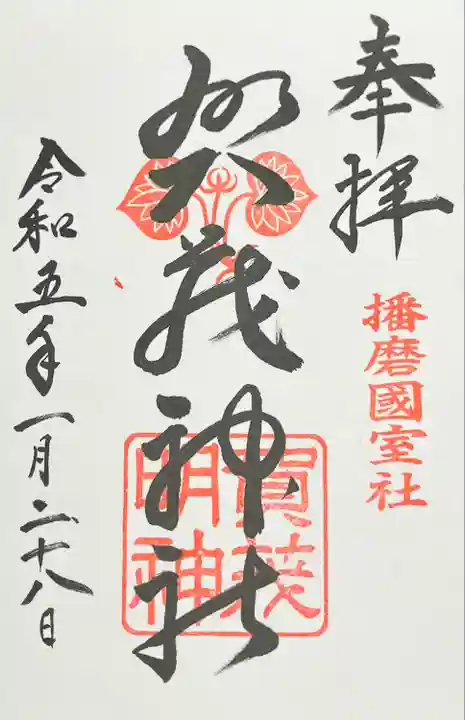 奉拝
播磨國室社
賀茂神社
賀茂
明神
令和五年一月二十八日